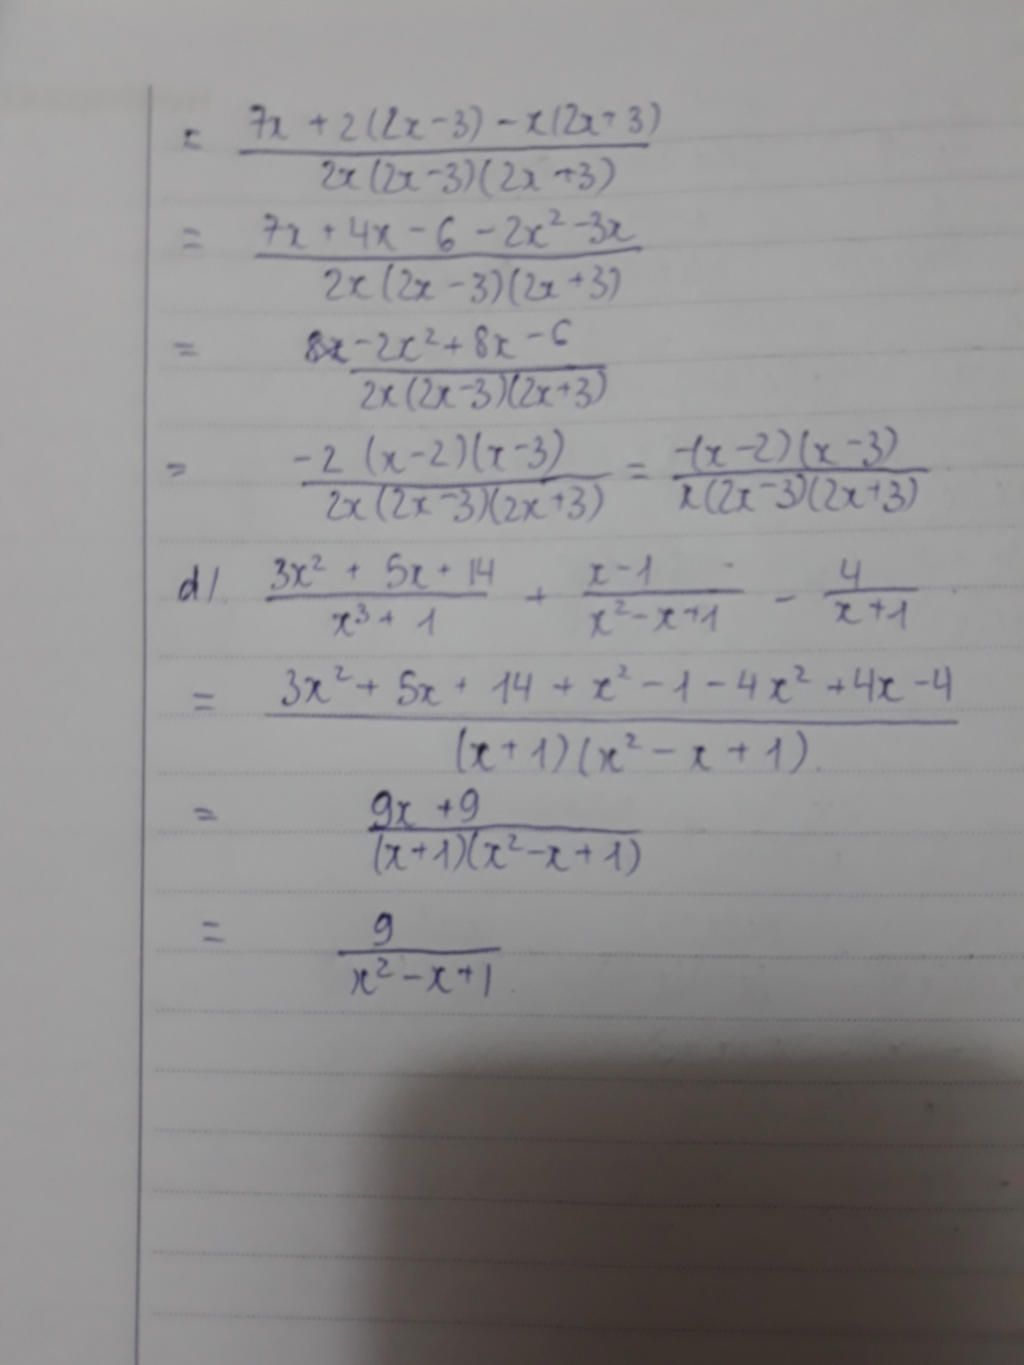 = 7x + 2(2x-3) - x(2x+3) / 2x(2x-3)(2x+3)
= 7x + 4x - 6 - 2x² - 3x / 2x(2x-3)(2x+3)
= -2x² + 8x - 6 / 2x(2x-3)(2x+3)
= -2 (x-2)(x-3) / 2x(2x-3)(2x+3) = -(x-2)(x-3) / x(2x-3)(2x+3)
d/. 3x² + 5x + 14 / x³ + 1 + x-1 / x²-x+1 - 4 / x+1
= 3x² + 5x + 14 + x² - 1 - 4x² + 4x - 4 / (x+1)(x² - x + 1).
= 9x + 9 / (x+1)(x²-x+1)
= 9 / x²-x+1.